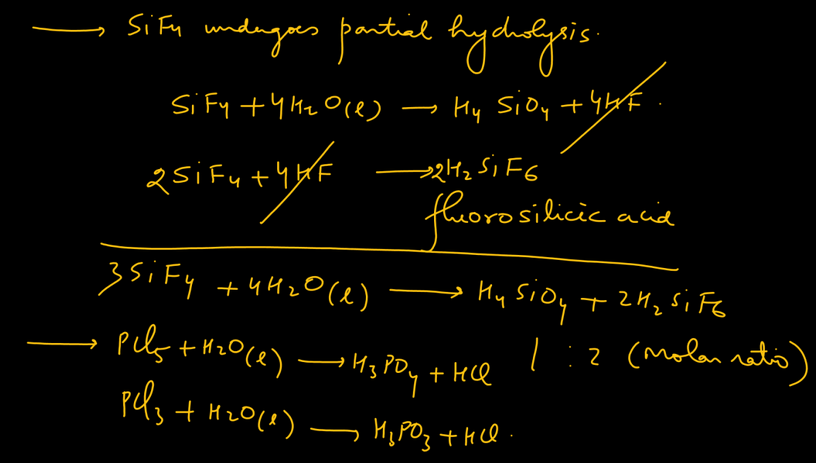 → SiF4 undergoes partial hydrolysis.
SiF4 + 4H2O(l) → H4SiO4 + 4HF.
2SiF4 + 4HF → 2H2SiF6
fluorosilicic acid
3SiF4 + 4H2O(l) → H4SiO4 + 2H2SiF6
→ PCl5 + H2O(l) → H3PO4 + HCl 1 : 2 (molar ratio)
PCl3 + H2O(l) → H3PO3 + HCl.